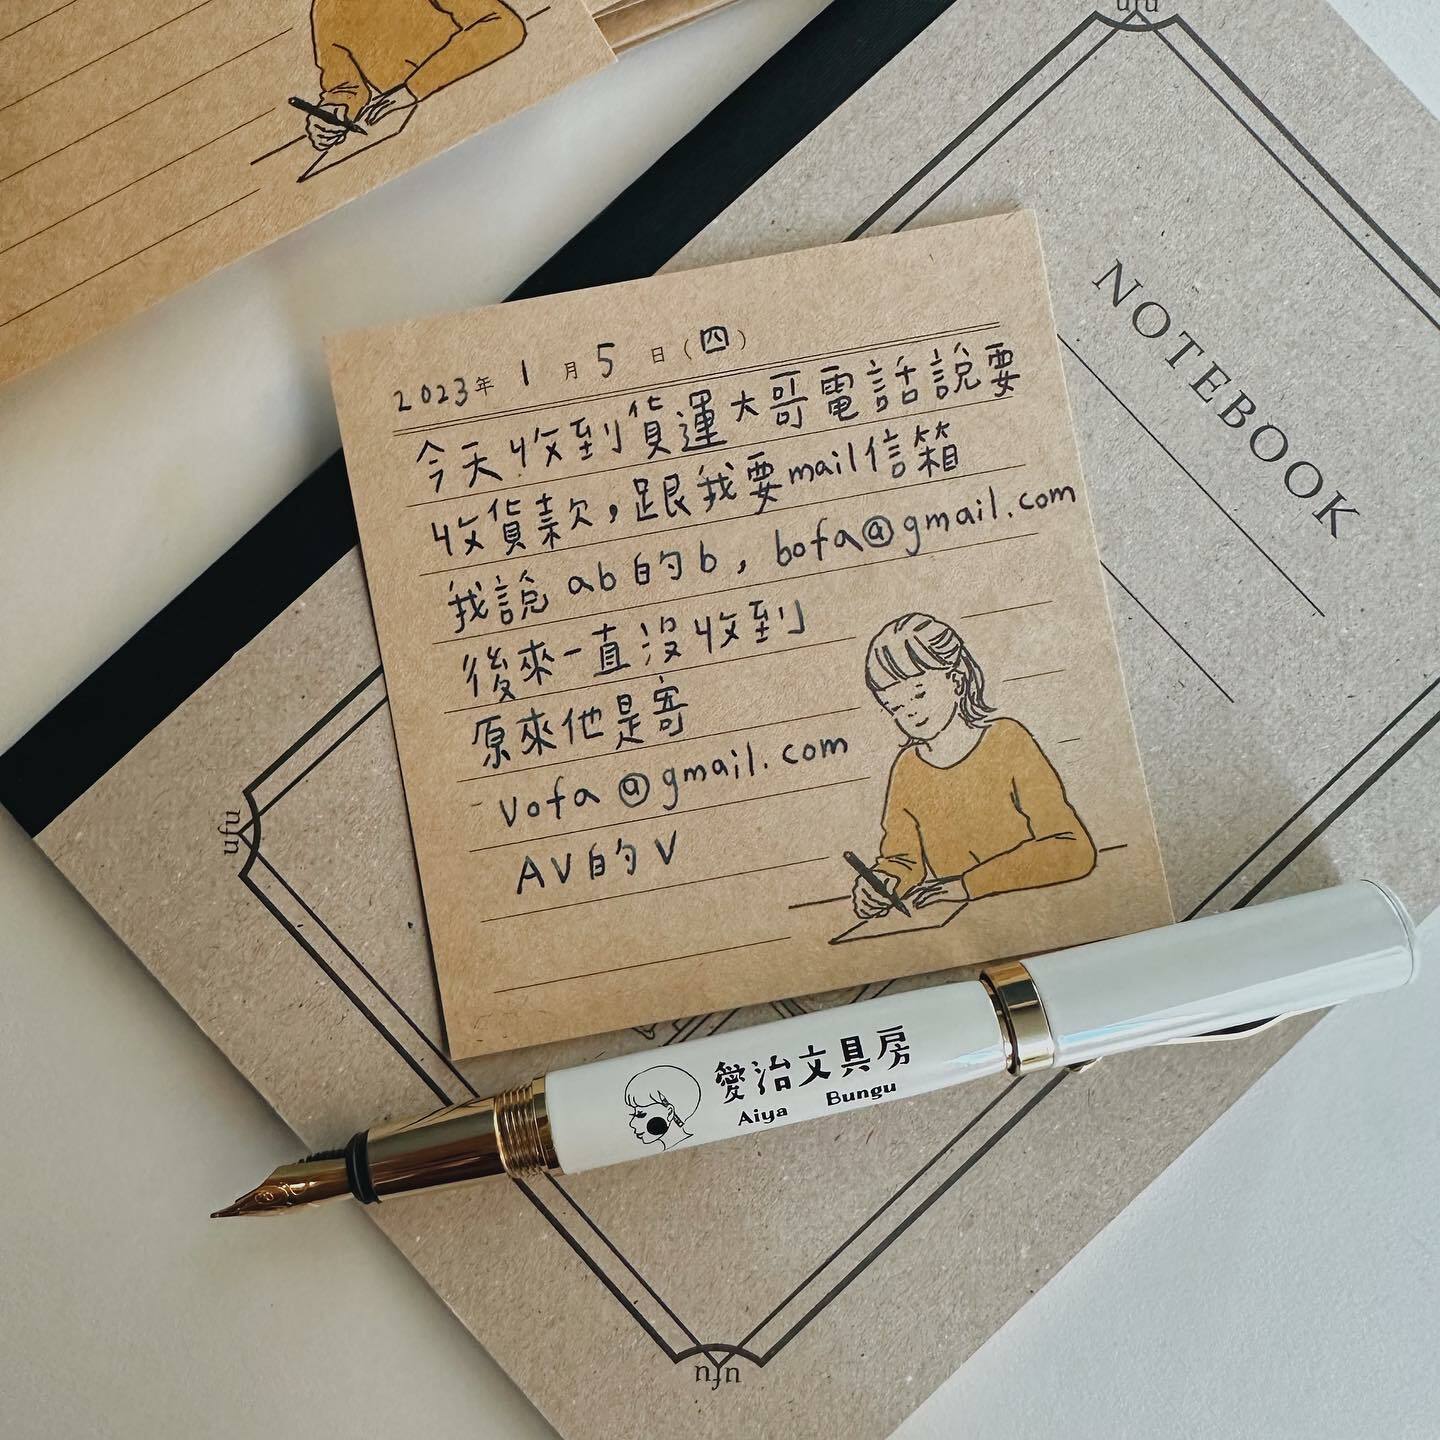 ufu
NOTEBOOK
2023年 1月5日(四)
今天收到貨運大哥電話說要
收貨款,跟我要mail信箱
我說ab的b,bofa@gmail.com
後來一直沒收到
原來他是寄
vofa@gmail.com
AV的V
ufu
愛治文具房
Aiya Bungu
ufu